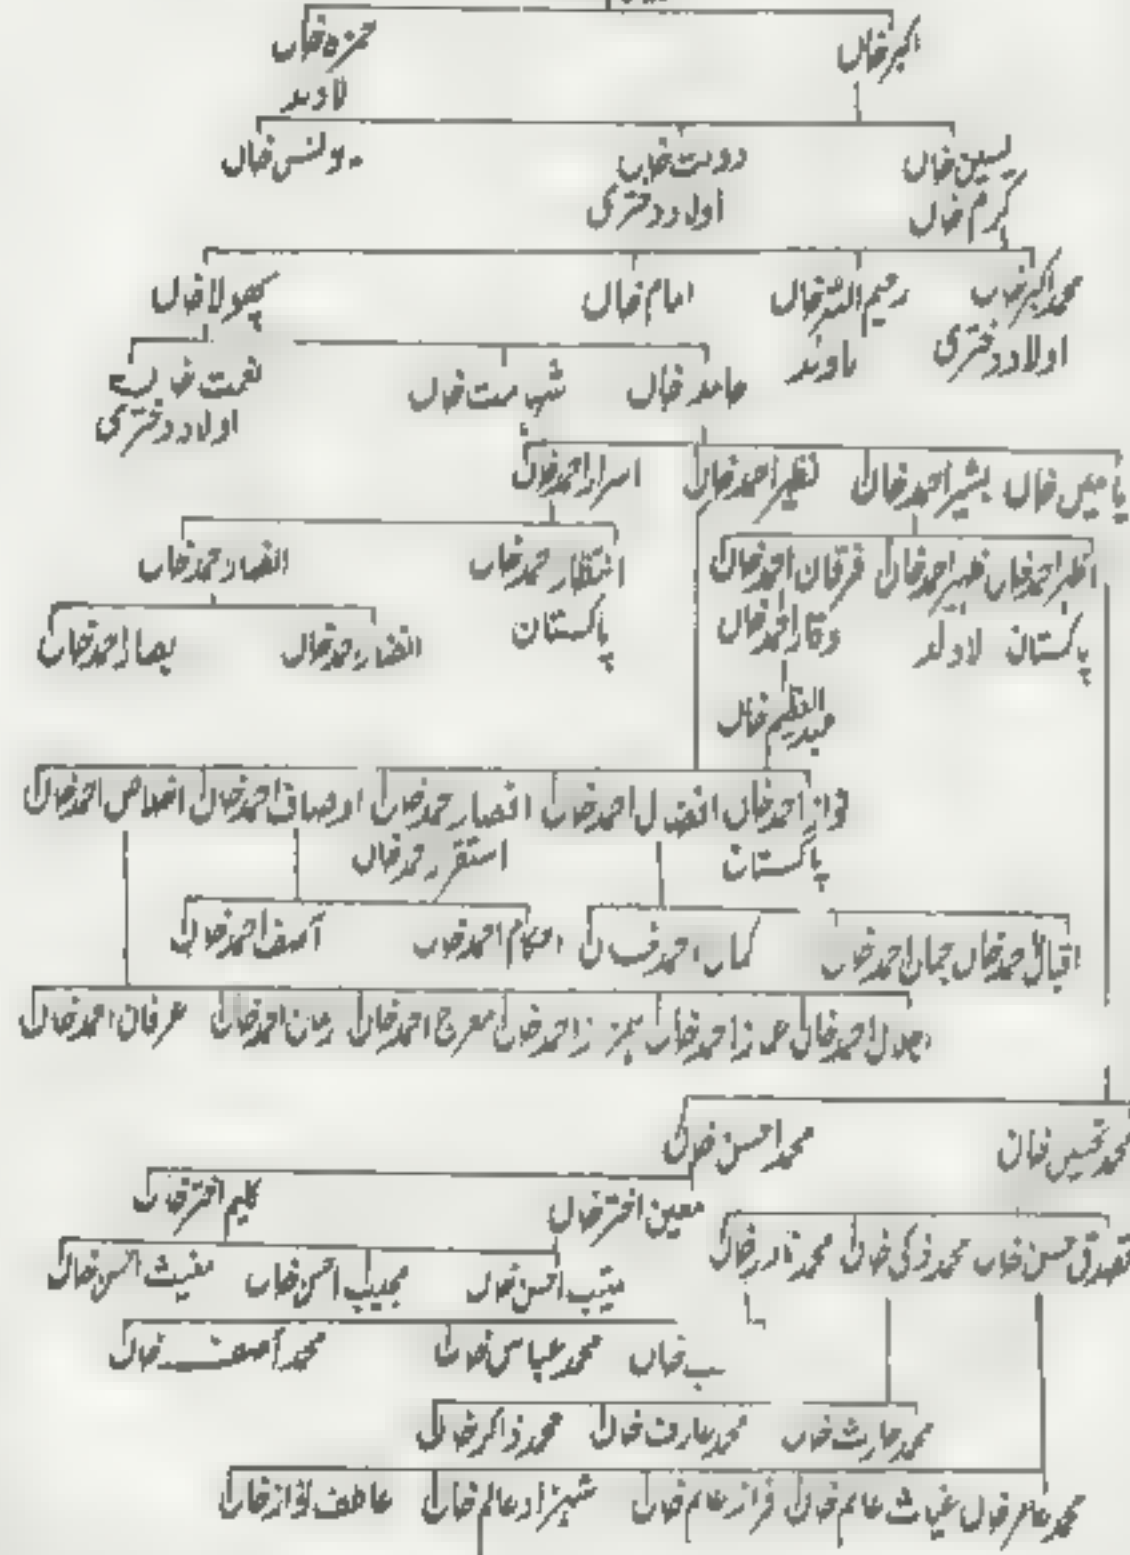 اکبر خاں حمزہ خاں
لاولد
یسین خاں دولت خاں یونس خاں
کرم خاں اولاد دختری
محمد اکبر خاں رحیم اللہ خاں امام خاں بھولا خاں
اولاد دختری لاولد
حامد خاں شہامت خاں نعمت خاں
اولاد دختری
یامین خاں بشیر احمد خاں نظیر احمد خاں اسرار احمد خاں
اظہر احمد خاں ظہیر احمد خاں فرقان احمد خاں انتظار احمد خاں انصار احمد خاں
پاکستان لاولد وقار احمد خاں پاکستان
احمد خاں احمد خاں
عبدالعظیم خاں
احمد خاں افضال احمد خاں انصار احمد خاں اوصاف احمد خاں اخلاص احمد خاں
پاکستان احمد خاں
اقبال احمد خاں جمال احمد خاں کمال احمد خاں احکام احمد خاں آصف احمد خاں
احمد خاں احمد خاں احمد خاں معراج احمد خاں احمد خاں عرفان احمد خاں
محمد تحسین خان محمد احسن خاں
معین اختر خاں کلیم اختر خاں
تصدق حسن خاں محمد ذکی خاں محمد نادر خاں
احسن خاں مجیب احسن خاں مغیث احسن خاں
خاں محمد عباس خاں محمد آصف خاں
محمد حارث خاں محمد عارف خاں محمد ذاکر خاں
محمد عامر خاں غیاث عالم خاں فراز عالم خاں شہزاد عالم خاں عاطف نواز خاں